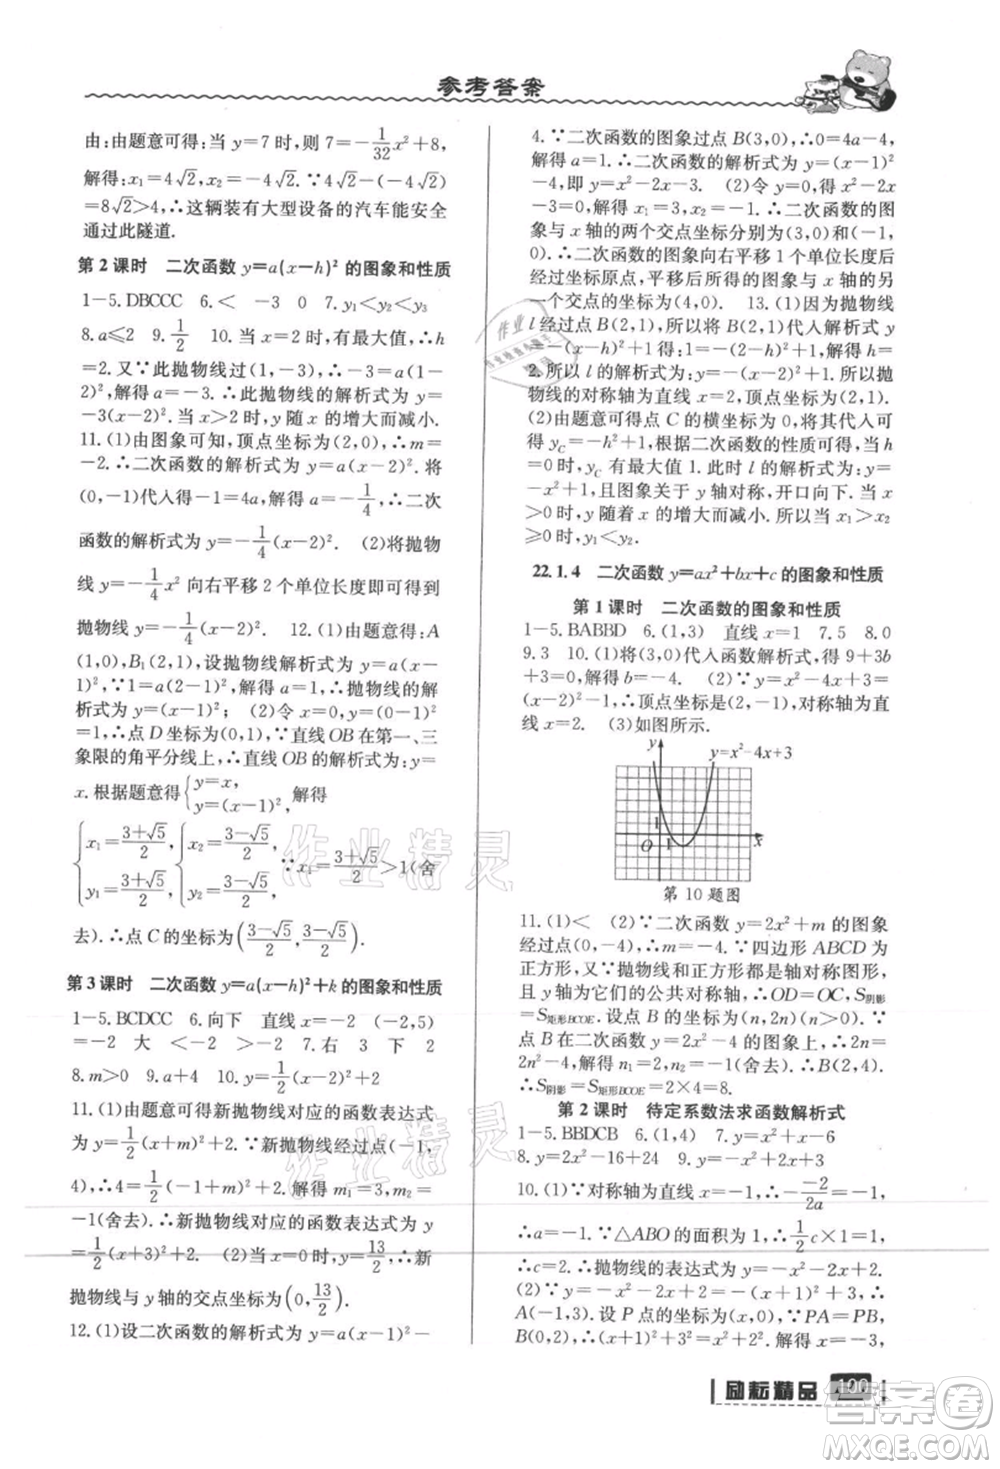 参考答案
由:由题意可得:当 y=7 时,则 7=-1/32x²+8,
解得:x₁=4√2,x₂=-4√2.∵4√2-(-4√2)
=8√2>4,∴这辆装有大型设备的汽车能安全
通过此隧道.
第 2 课时 二次函数 y=a(x-h)² 的图象和性质
1-5.DBCCC 6.< -3 0 7.y₁<y₂<y₃
8.a≤2 9.1/2 10.当 x=2 时,有最大值,∴h
=2.又∵此抛物线过(1,-3),∴-3=a(1-
2)²,解得 a=-3.∴此抛物线的解析式为 y=
-3(x-2)².当 x>2 时,y 随 x 的增大而减小.
11.(1)由图象可知,顶点坐标为(2,0),∴m=
-2.∴二次函数的解析式为 y=a(x-2)².将
(0,-1)代入得-1=4a,解得 a=-1/4,∴二次
函数的解析式为 y=-1/4(x-2)² (2)将抛物
线 y=-1/4x² 向右平移 2 个单位长度即可得到
抛物线 y=-1/4(x-2)². 12.(1)由题意得:A
(1,0),B₁(2,1),设抛物线的解析式为 y=a(x
-1)²,∵1=a(2-1)²,解得 a=1,∴抛物线的解
析式为 y=(x-1)²; (2)令 x=0,得 y=(0-1)²
=1,∴点 D 坐标为(0,1),∵直线 OB 在第一、三
象限的角平分线上,∴直线 OB 的解析式为 y=
x.根据题意得{y=x, y=(x-1)²,解得
{x₁=(3+√5)/2, y₁=(3+√5)/2, {x₂=(3-√5)/2, y₂=(3-√5)/2. ∵x₁=(3+√5)/2>1(舍
去).∴点 C 的坐标为((3-√5)/2,(3-√5)/2).
第 3 课时 二次函数 y=a(x-h)²+k 的图象和性质
1-5.BCDCC 6.向下 直线 x=-2 (-2,5)
=-2 大 <-2 >-2 7.右 3 下 2
8.m>0 9.a+4 10.y=1/2(x-2)²+1
11.(1)由题意可得新抛物线对应的函数表达式
为 y=1/2(x+m)²+2,∵新抛物线经过点(-1,
4),∴4=1/2(-1+m)²+2,解得 m₁=3,m₂=
-1(舍去),∴新抛物线对应的函数表达式为 y
=1/2(x+3)²+2 (2)当 x=0 时,y=13/2,∴新
抛物线与 y 轴的交点坐标为(0,13/2).
12.(1)设二次函数的解析式为 y=a(x-1)²-
4.∵二次函数的图象过点 B(3,0),∴0=4a-4,
解得 a=1.∴二次函数的解析式为 y=(x-1)²
-4,即 y=x²-2x-3. (2)令 y=0,得 x²-2x-
3=0,解得 x₁=3,x₂=-1.∴二次函数的图
象与 x 轴的两个交点坐标分别为(3,0)和(-1,
0).∴二次函数的图象向右平移 1 个单位长度后
经过坐标原点,平移后所得的图象与 x 轴的
另一个交点的坐标为(4,0) 13.(1)因为抛物线
l 经过点 B(2,1),所以将 B(2,1)代入解析式 y
=-(x-h)²+1得:1=-(2-h)²+1,解得 h=
2.所以 l 的解析式为 y=-(x-2)²+1.则抛
物线的对称轴为直线 x=2,顶点坐标为(2,1).
(2)由题意知点 C 的横坐标为 0,将其代入可
得 y_C=-h²+1,根据二次函数的性质可得,当 h
=0 时,y_C 有最大值 1.此时 l 的解析式为 y=
-x²+1,且图象关于 y 轴对称,开口向下.当 x
>0 时,y 随着 x 的增大而减小.所以当 x₁>x₂
≥0 时,y₁<y₂.
22.1.4 二次函数 y=ax²+bx+c 的图象和性质
第 1 课时 二次函数的图象和性质
1-5.BABBD 6.(1,3) 直线 x=1 7.5 8.0
9.3 10.(1)将(3,0)代入函数解析式,得 9+3b
+3=0,解得 b=-4. (2)∵y=x²-4x+3=
(x-2)²-1,∴顶点坐标是(2,-1),对称轴为直
线 x=2. (3)如图所示.
y y=x²-4x+3
1
O 1 x
第 10 题图
11.(1)< (2)∵二次函数 y=2x²+m 的图象
经过点(0,-4),∴m=-4.∵四边形 ABCD 为
正方形,又∵抛物线和正方形都是轴对称图形,
且 y 轴为它们的公共对称轴,∴OD=OC,S阴影
=S矩形BCOE.设点 B 的坐标为(n,2n)(n>0).∵
点 B 在二次函数 y=2x²-4 的图象上,∴2n=
2n²-4,解得 n₁=2,n₂=-1(舍去).∴B(2,4).
∴S阴影=S矩形BCOE=2×4=8.
第 2 课时 待定系数法求函数解析式
1-5.BBDCB 6.(1,4) 7.y=x²+x-6
8.y=2x²-16+24 9.y=-x²+2x+3
10.(1)∵对称轴为直线 x=-1,∴-(-2)/(2a)=-1,
∴a=-1.∵△ABO 的面积为 1,∴1/2c×1=1,
∴c=2.∴抛物线的表达式为 y=-x²-2x+2.
(2)∵y=-x²-2x+2=-(x+1)²+3,∴
A(-1,3).设 P 点的坐标为(x,0),∵PA=PB,
B(0,2),∴(x+1)²+3²=x²+2²,解得 x=-3,
励耘精品 100
作业精灵
作业精灵
答案圈
MXQE.COM